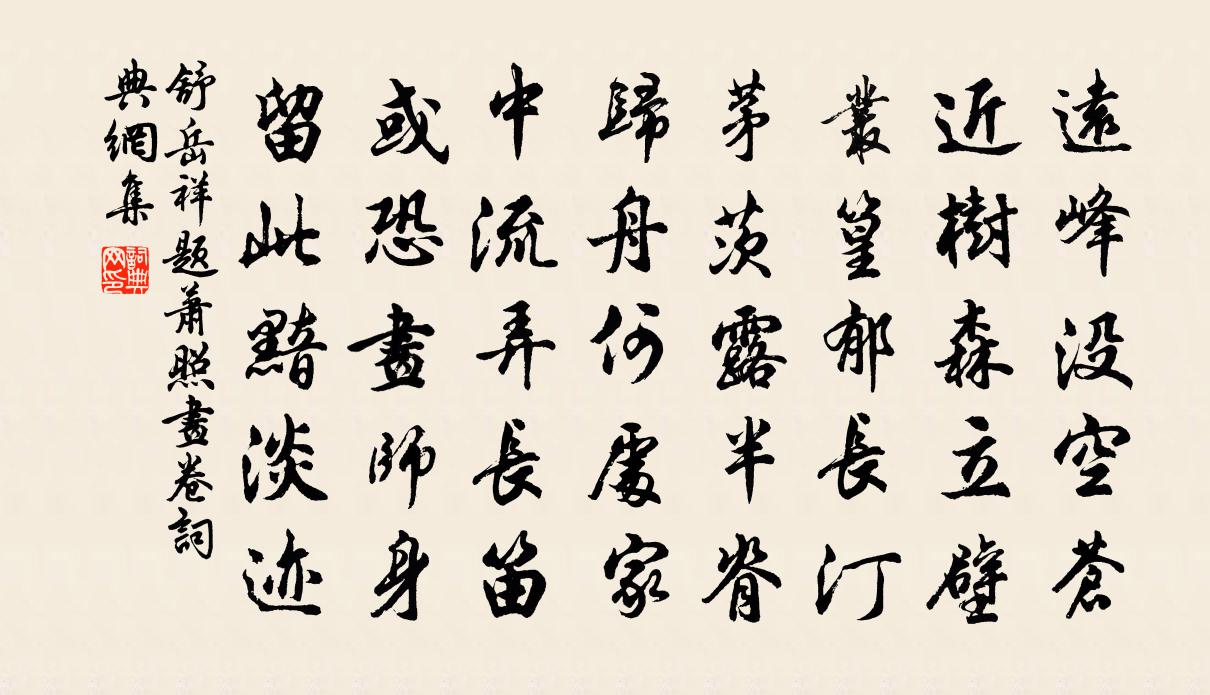 遠峰没空蒼
近樹森立壁
叢篁郁長汀
茅茨露半脊
歸舟何處家
中流弄長笛
或恐畫師身
留此黯淡迹
舒岳祥題蕭照畫卷詞
典網集
詞典
网印